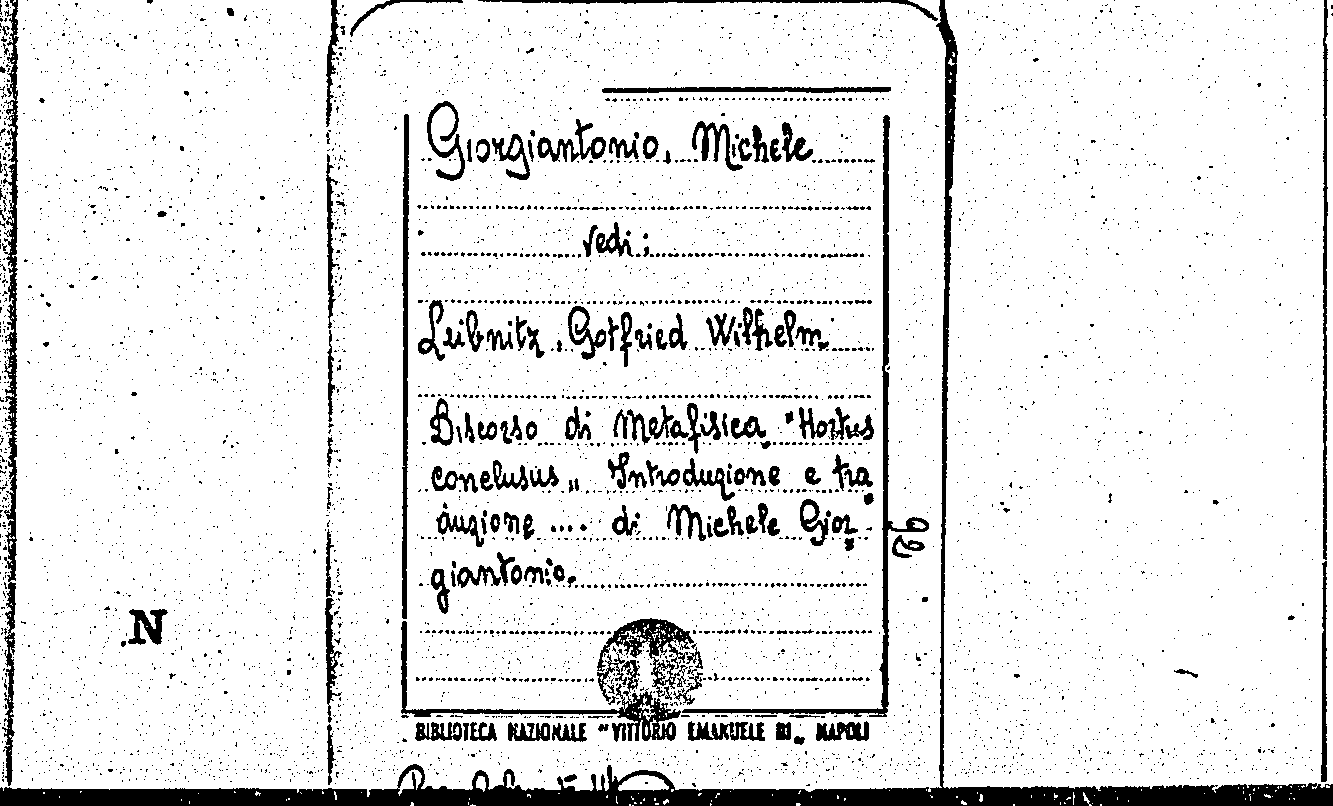 Giorgiantonio, Michele
vedi:
Leibnitz, Gotfried Wilhelm
Discorso di Metafisica "Hortus
conclusus„ Introduzione e tra
duzione .... di Michele Gior
giantonio.
N
BIBLIOTECA NAZIONALE "VITTORIO EMANUELE III„ NAPOLI